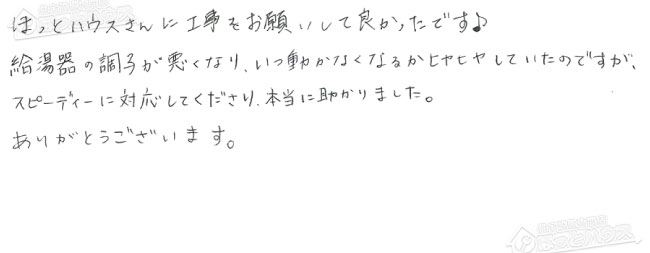 ほっとハウスさんに工事をお願いして良かったです♪
給湯器の調子が悪くなり、いつ動かなくなるかヒヤヒヤしていたのですが、
スピーディーに対応してくださり、本当に助かりました。
ありがとうございます。